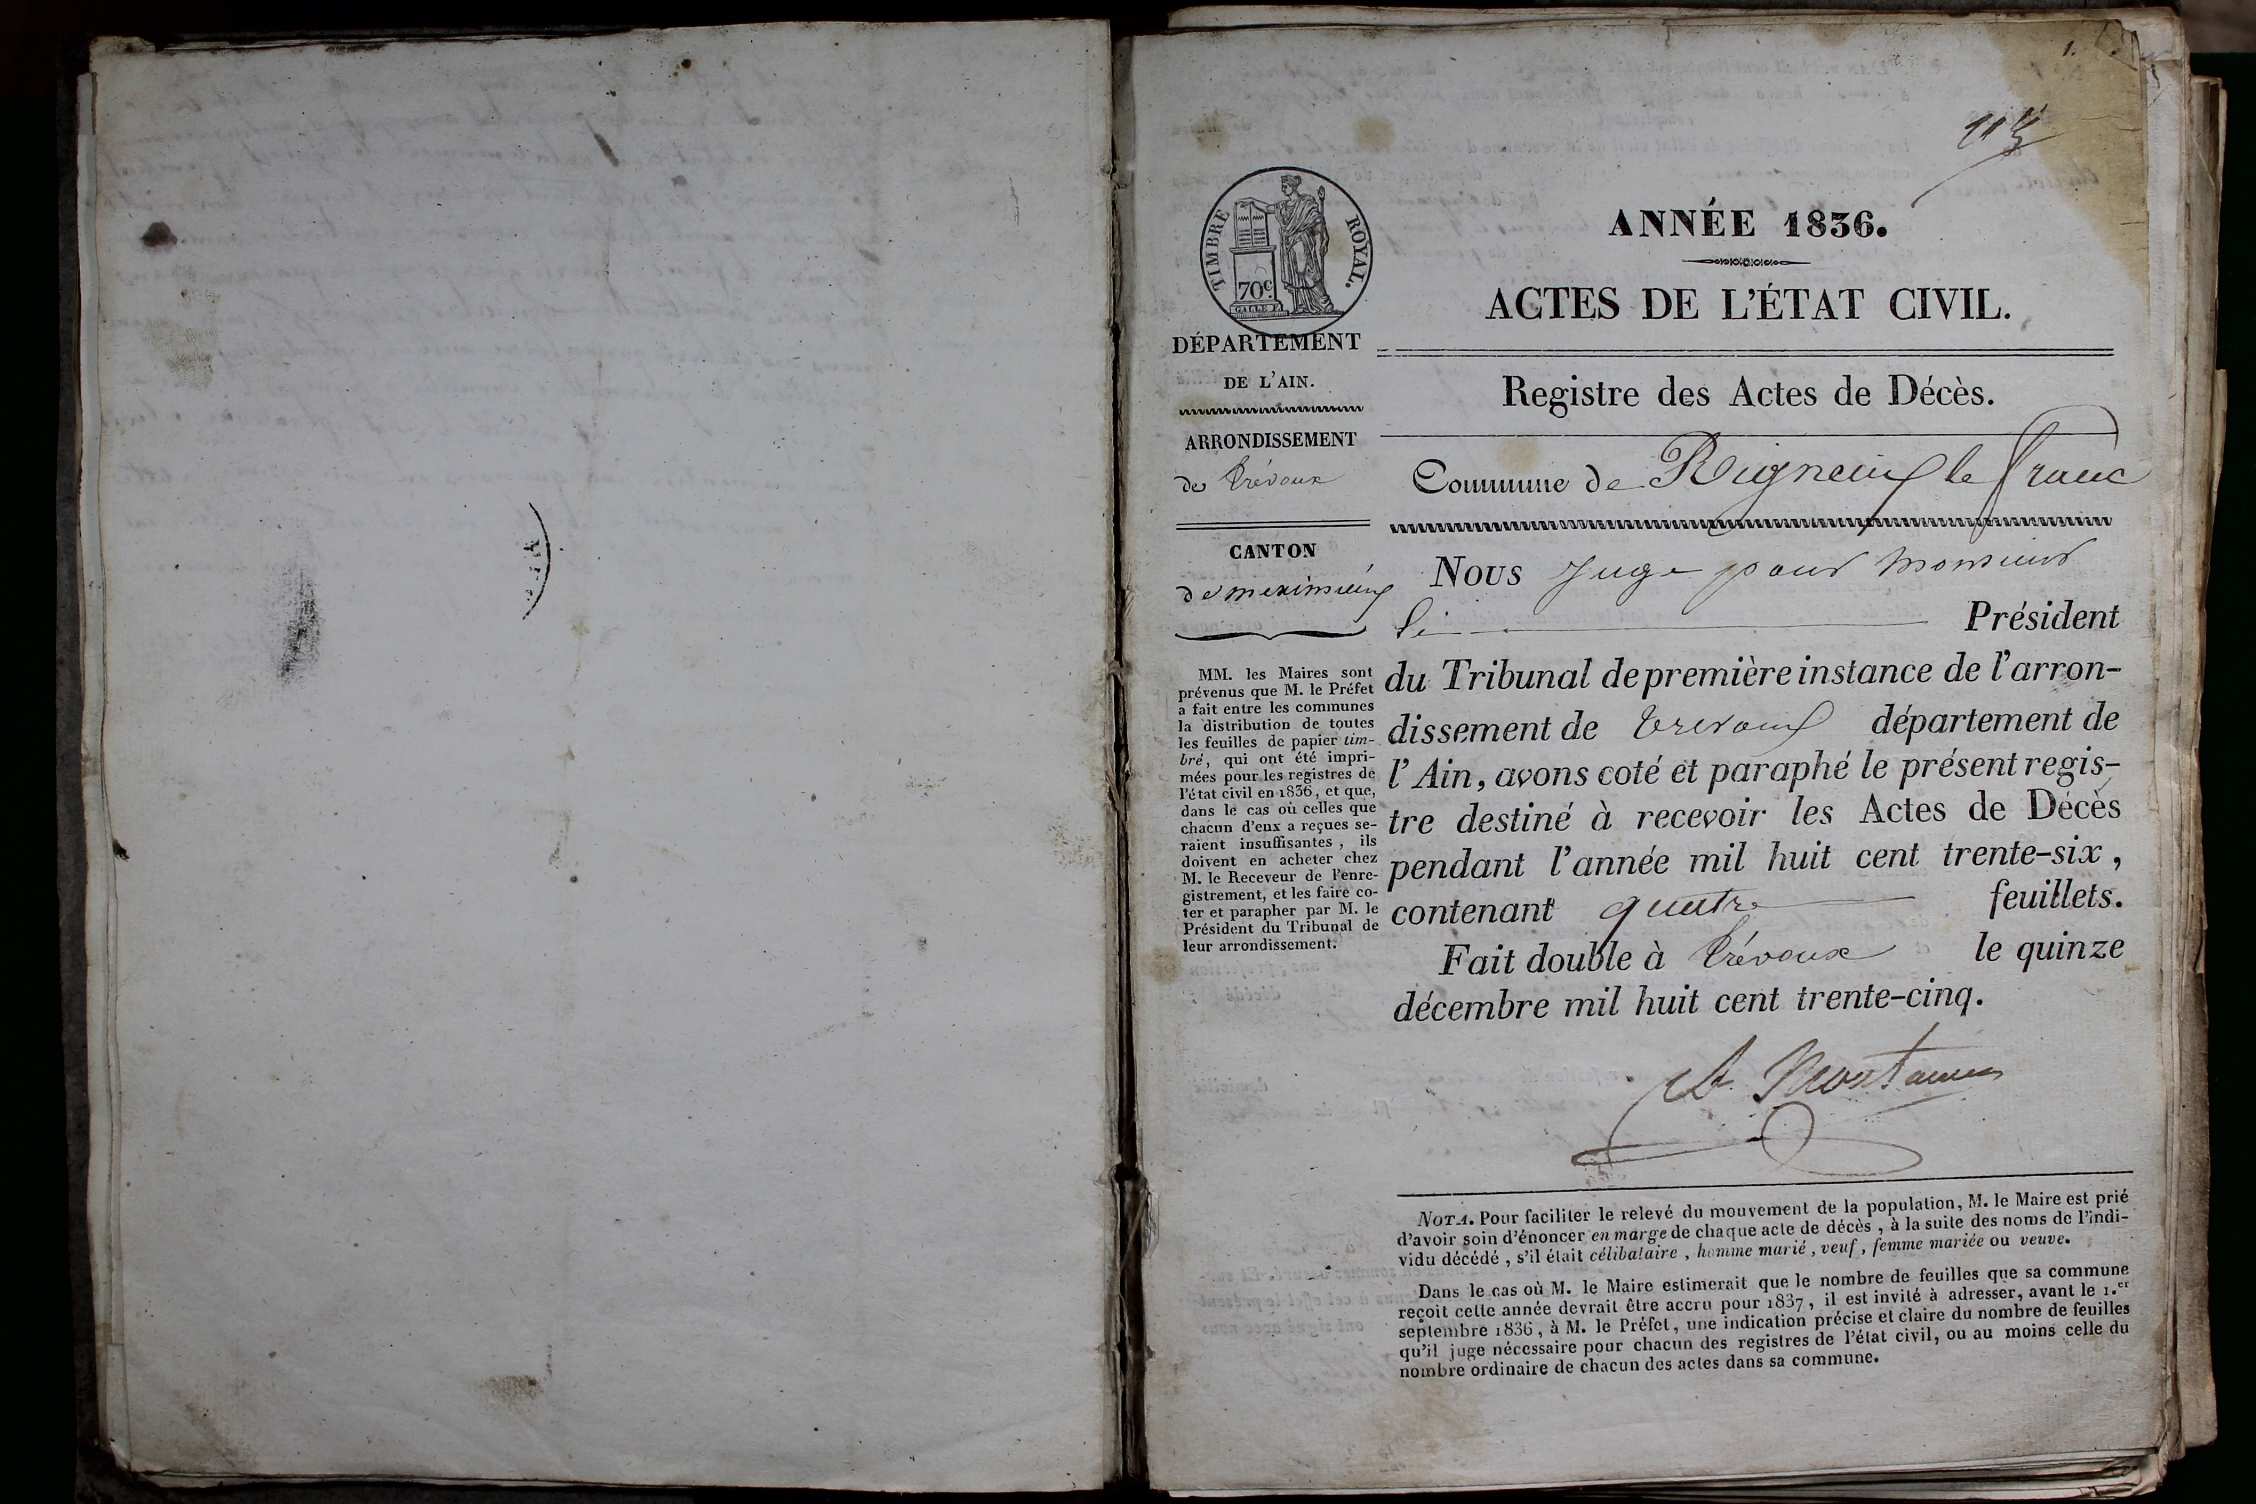 1.
ANNÉE 1836.
ACTES DE L'ÉTAT CIVIL.
Registre des Actes de Décès.
Commune de Rigneux le franc
TIMBRE ROYAL.
70c
DÉPARTEMENT
DE L'AIN.
ARRONDISSEMENT
de Trévoux
CANTON
de meximieux
MM. les Maires sont
prévenus que M. le Préfet
a fait entre les communes
la distribution de toutes
les feuilles de papier tim-
bré, qui ont été impri-
mées pour les registres de
l'état civil en 1836, et que,
dans le cas où celles que
chacun d'eux a reçues se-
raient insuffisantes, ils
doivent en acheter chez
M. le Receveur de l'enre-
gistrement, et les faire co-
ter et parapher par M. le
Président du Tribunal de
leur arrondissement.
Nous Juge pour Monsieur
le Président
du Tribunal de première instance de l'arron-
dissement de trevoux département de
l'Ain, avons coté et paraphé le présent regis-
tre destiné à recevoir les Actes de Décès
pendant l'année mil huit cent trente-six,
contenant quatre feuillets.
Fait double à Trévoux le quinze
décembre mil huit cent trente-cinq.
NOTA. Pour faciliter le relevé du mouvement de la population, M. le Maire est prié
d'avoir soin d'énoncer en marge de chaque acte de décès, à la suite des noms de l'indi-
vidu décédé, s'il était célibataire, homme marié, veuf, femme mariée ou veuve.
Dans le cas où M. le Maire estimerait que le nombre de feuilles que sa commune
reçoit cette année devrait être accru pour 1837, il est invité à adresser, avant le 1.er
septembre 1836, à M. le Préfet, une indication précise et claire du nombre de feuilles
qu'il juge nécessaire pour chacun des registres de l'état civil, ou au moins celle du
nombre ordinaire de chacun des actes dans sa commune.